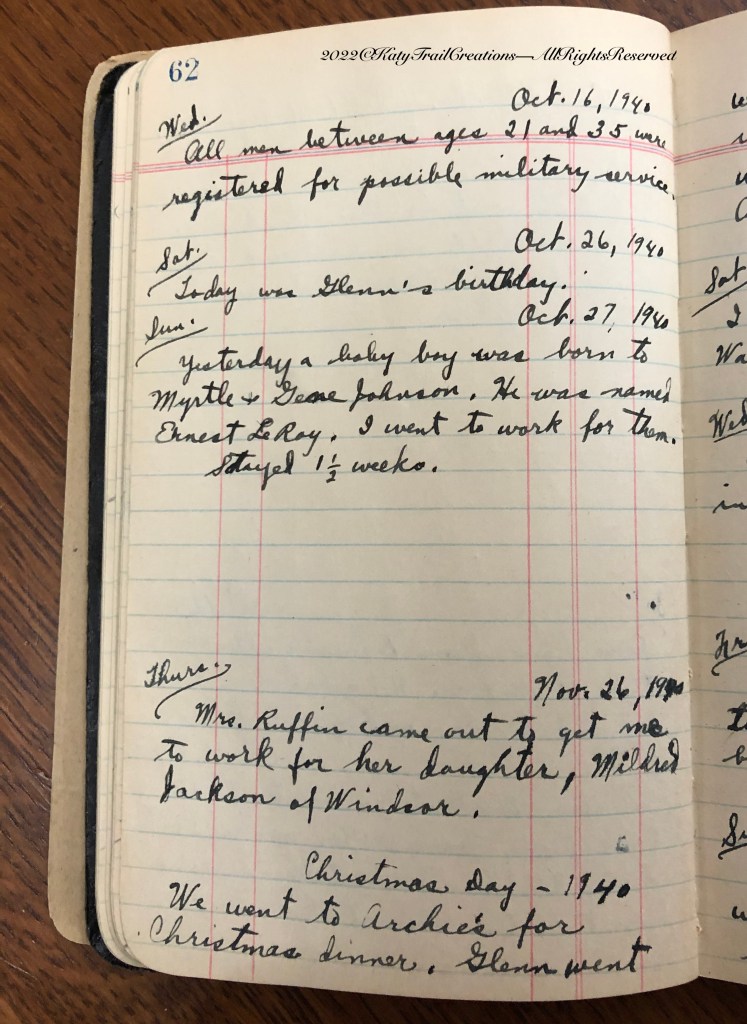 2022©KatyTrailCreations—AllRightsReserved
62
Oct. 16, 1940
Wed.
All men between ages 21 and 35 were
registered for possible military service.
Oct. 26, 1940
Sat.
Today was Glenn's birthday.
Oct. 27, 1940
Sun.
Yesterday a baby boy was born to
Myrtle & Gene Johnson. He was named
Ernest LeRoy. I went to work for them.
Stayed 1½ weeks.
Thurs.
Nov. 26, 1940
Mrs. Ruffin came out to get me
to work for her daughter, Mildred
Jackson of Windsor.
Christmas Day - 1940
We went to Archie's for
Christmas dinner. Glenn went
Sat.
I
Wa
Wed
in